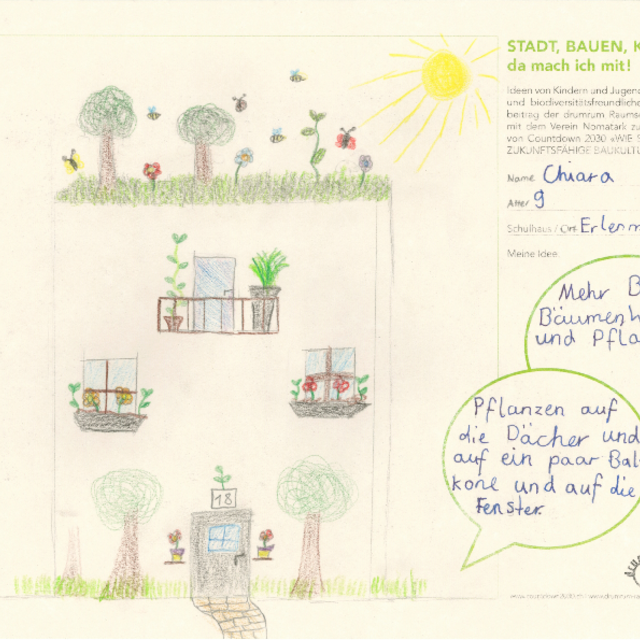 STADT, BAUEN, K
da mach ich mit!
Ideen von Kindern und Jugend
und biodiversitätsfreundliche
beitrag der drumrum Raumsc
mit dem Verein Nomatark zu
von Countdown 2030 «WIE S
ZUKUNFTSFÄHIGE BAUKULTU
Name Chiara
Alter 9
Schulhaus / Ort Erlenm
Meine Idee
Mehr B
Bäumenh
und Pfla
Pflanzen auf
die Dächer und
auf ein paar Bal-
kone und auf die
Fenster.
18